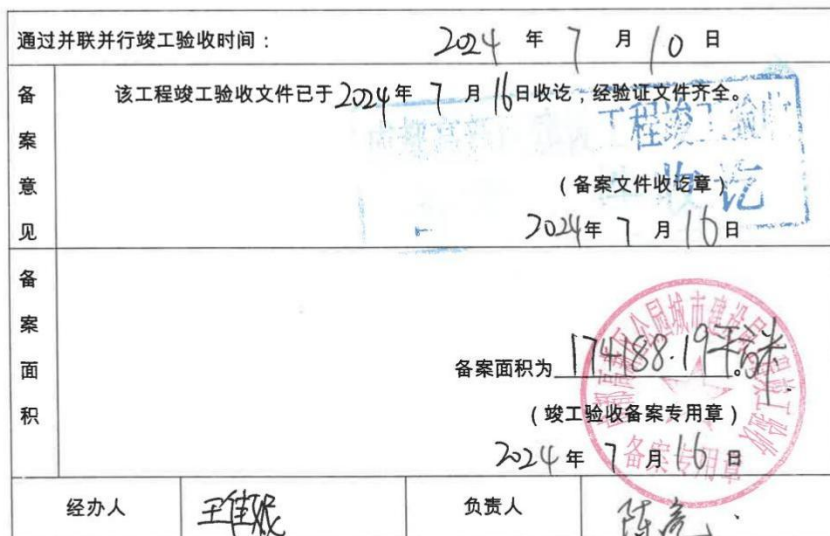 通过并联并行竣工验收时间： 2024 年 7 月 10 日
备案意见
该工程竣工验收文件已于2024年 7 月 16日收讫，经验证文件齐全。
工程竣工验收
收讫
（备案文件收讫章）
2024年 7 月 16 日
备案面积
备案面积为 174188.19平方米。
（竣工验收备案专用章）
2024 年 7 月 16 日
公园城市建设局竣工验收
备案专用章
经办人 王佳妮 负责人 陈